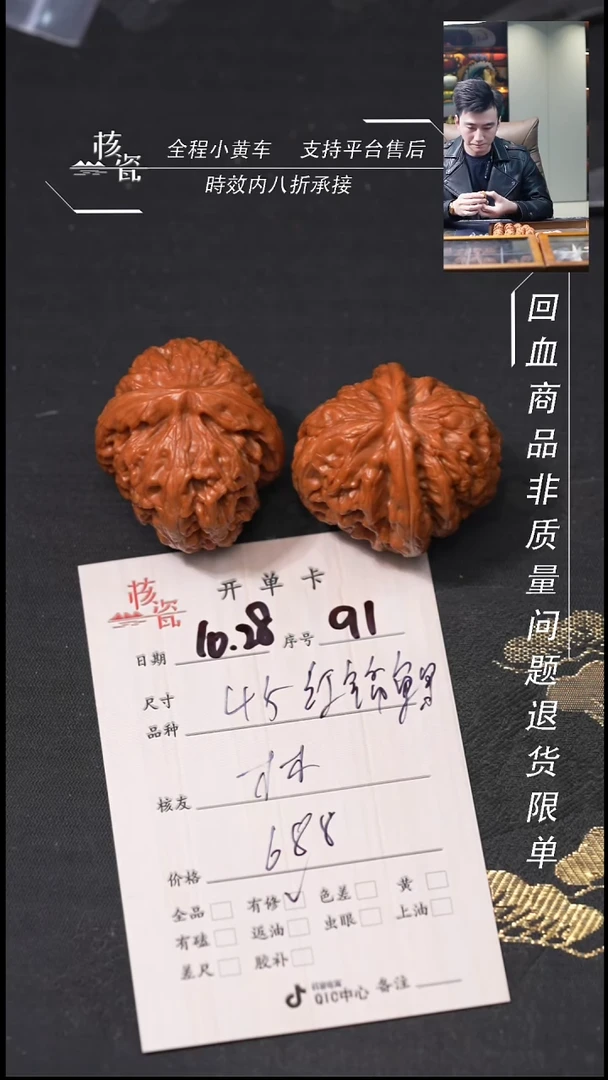 核瓷
全程小黄车 支持平台售后
時效内八折承接
回血商品非质量问题退货限单
核瓷
开单卡
日期 10.28 序号 91
尺寸
品种 45
核友
价格 688
全品 有修 ✓ 色差 黄
有磕 返油 虫眼 上油
差尺 胶补
QIC中心 备注